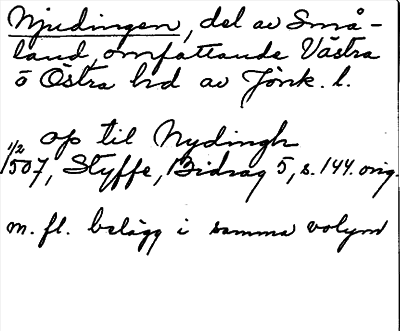 Njudingen, del av Små-
land, omfattande Västra
o Östra hrd av Jönk. l.
op til Nydingh
1/2 1507, Styffe, Bidrag 5, s. 144. orig.
m. fl. belägg i samma volym